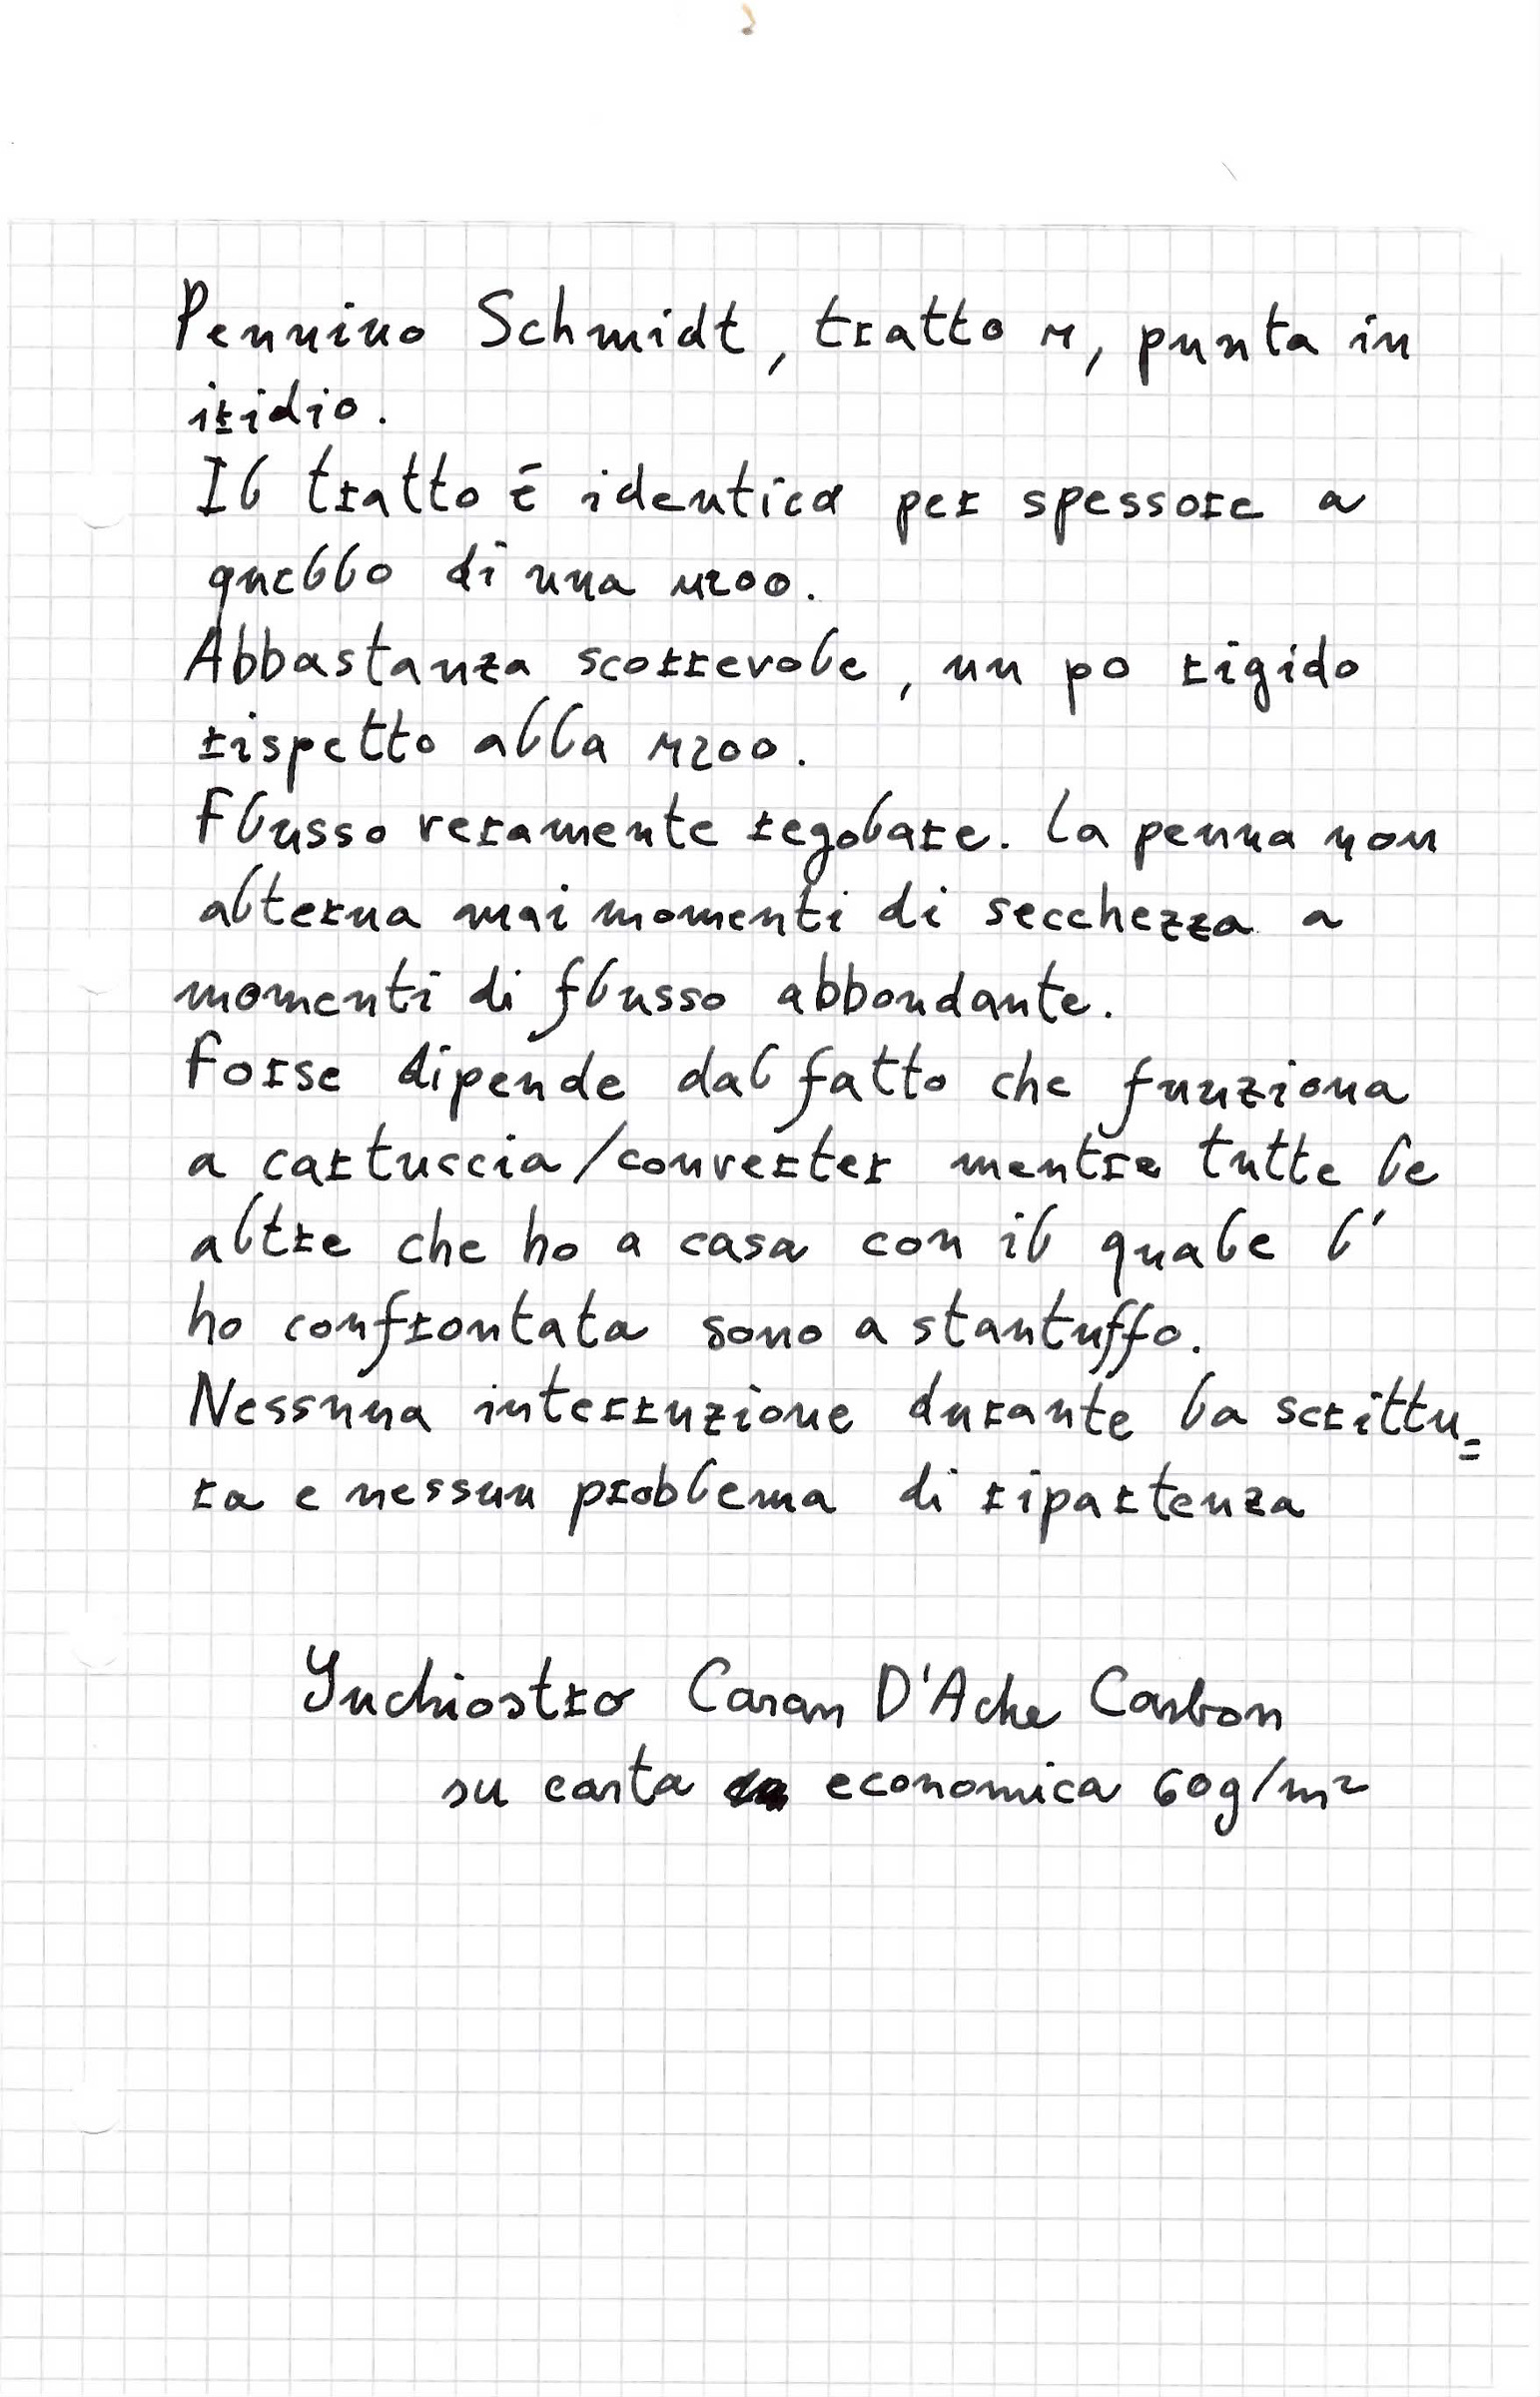 Pennino Schmidt, tratto M, punta in
iridio.
Il tratto è identico per spessore a
quello di una M200.
Abbastanza scorrevole, un po rigido
rispetto alla M200.
Flusso veramente regolare. La penna non
alterna mai momenti di secchezza a
momenti di flusso abbondante.
Forse dipende dal fatto che funziona
a cartuccia/converter mentre tutte le
altre che ho a casa con il quale l'
ho confrontata sono a stantuffo.
Nessuna interruzione durante la scrittu=
ra e nessun problema di ripartenza
Inchiostro Caran D'Ache Carbon
su carta economica 60g/m²